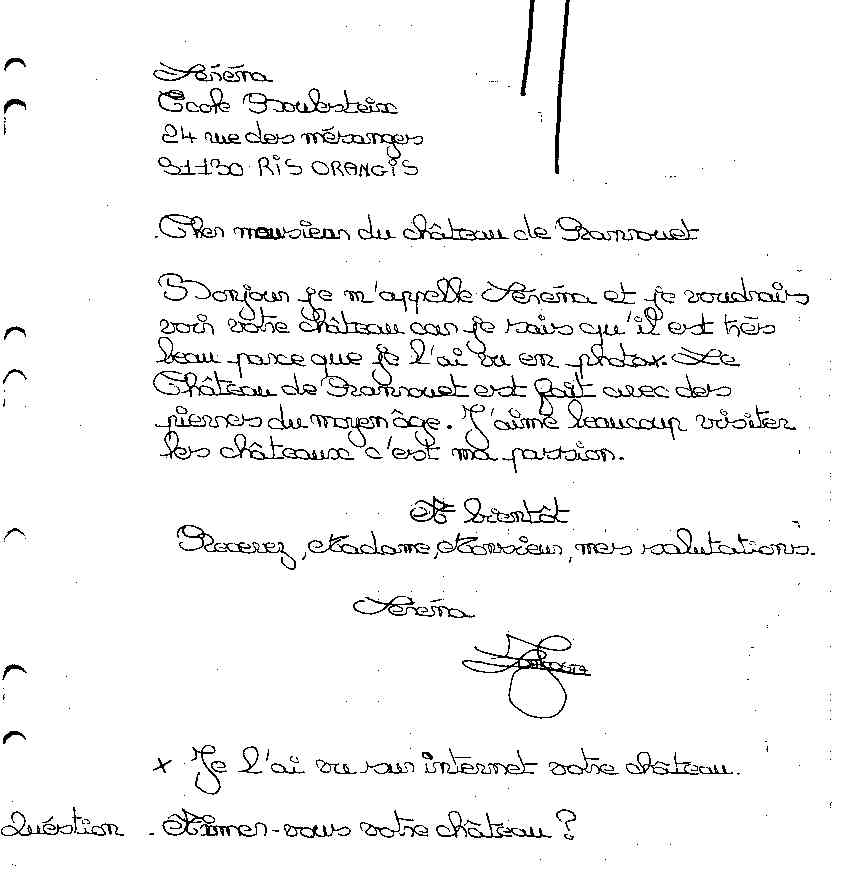 Séréna
École Boulesteix
24 rue des mésanges
91130 RIS ORANGIS
Cher monsieur du château de Ranrouet
Bonjour je m'appelle Séréna et je voudrais
voir votre château car je sais qu'il est très
beau parce que je l'ai vu en photox. Le
Château de Ranrouet est fait avec des
pierres du moyen âge. J'aime beaucoup visiter
les châteaux c'est ma passion.
A bientôt
Recevez, Madame, Monsieur, mes salutations.
Séréna
x Je l'ai vu sur internet votre château.
Quéstion . Aimer-vous votre château ?